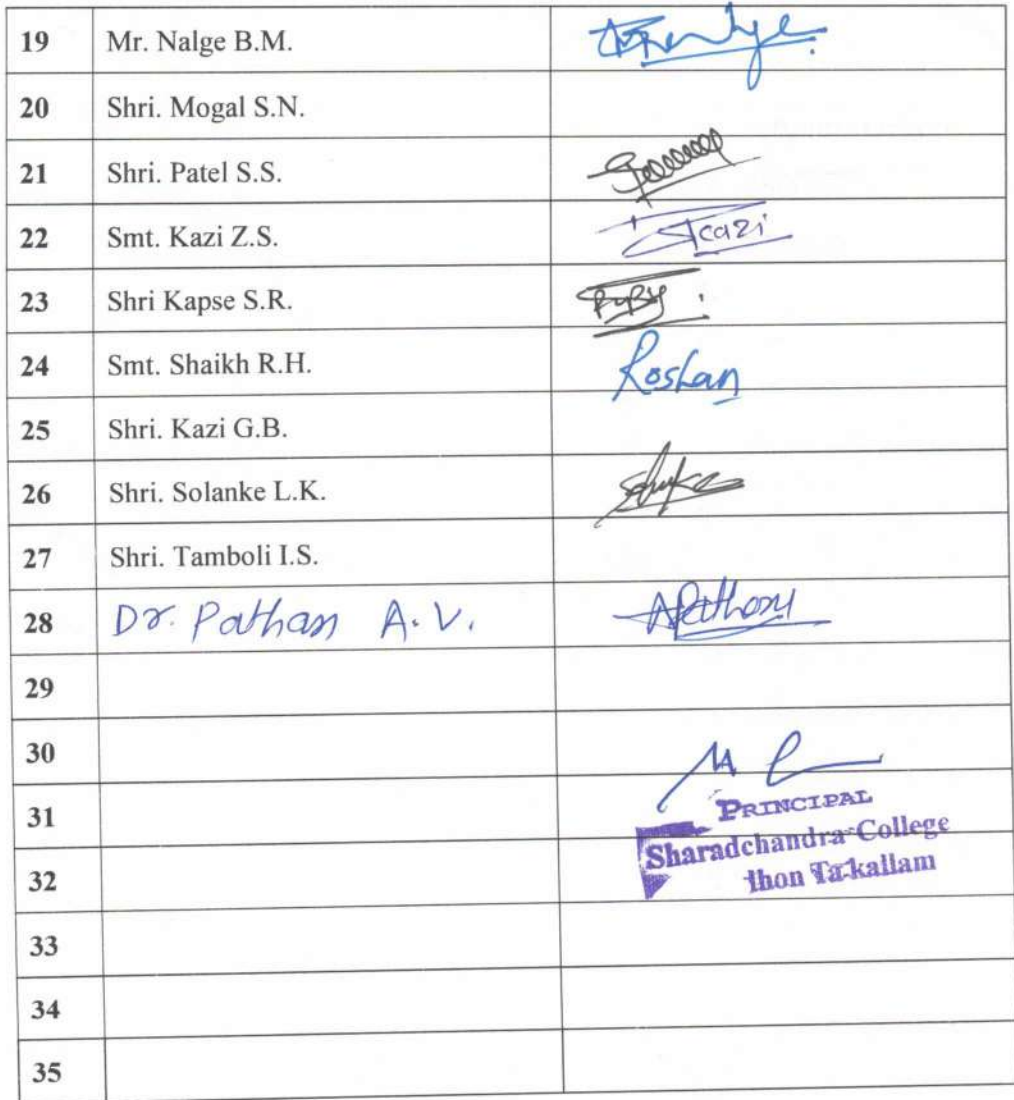 19 Mr. Nalge B.M.
20 Shri. Mogal S.N.
21 Shri. Patel S.S.
22 Smt. Kazi Z.S. Kazi
23 Shri Kapse S.R.
24 Smt. Shaikh R.H. Roshan
25 Shri. Kazi G.B.
26 Shri. Solanke L.K.
27 Shri. Tamboli I.S.
28 Dr. Pathan A.V. APathan
29
30
31 PRINCIPAL
Sharadchandra College
32 Ta-kallam
33
34
35